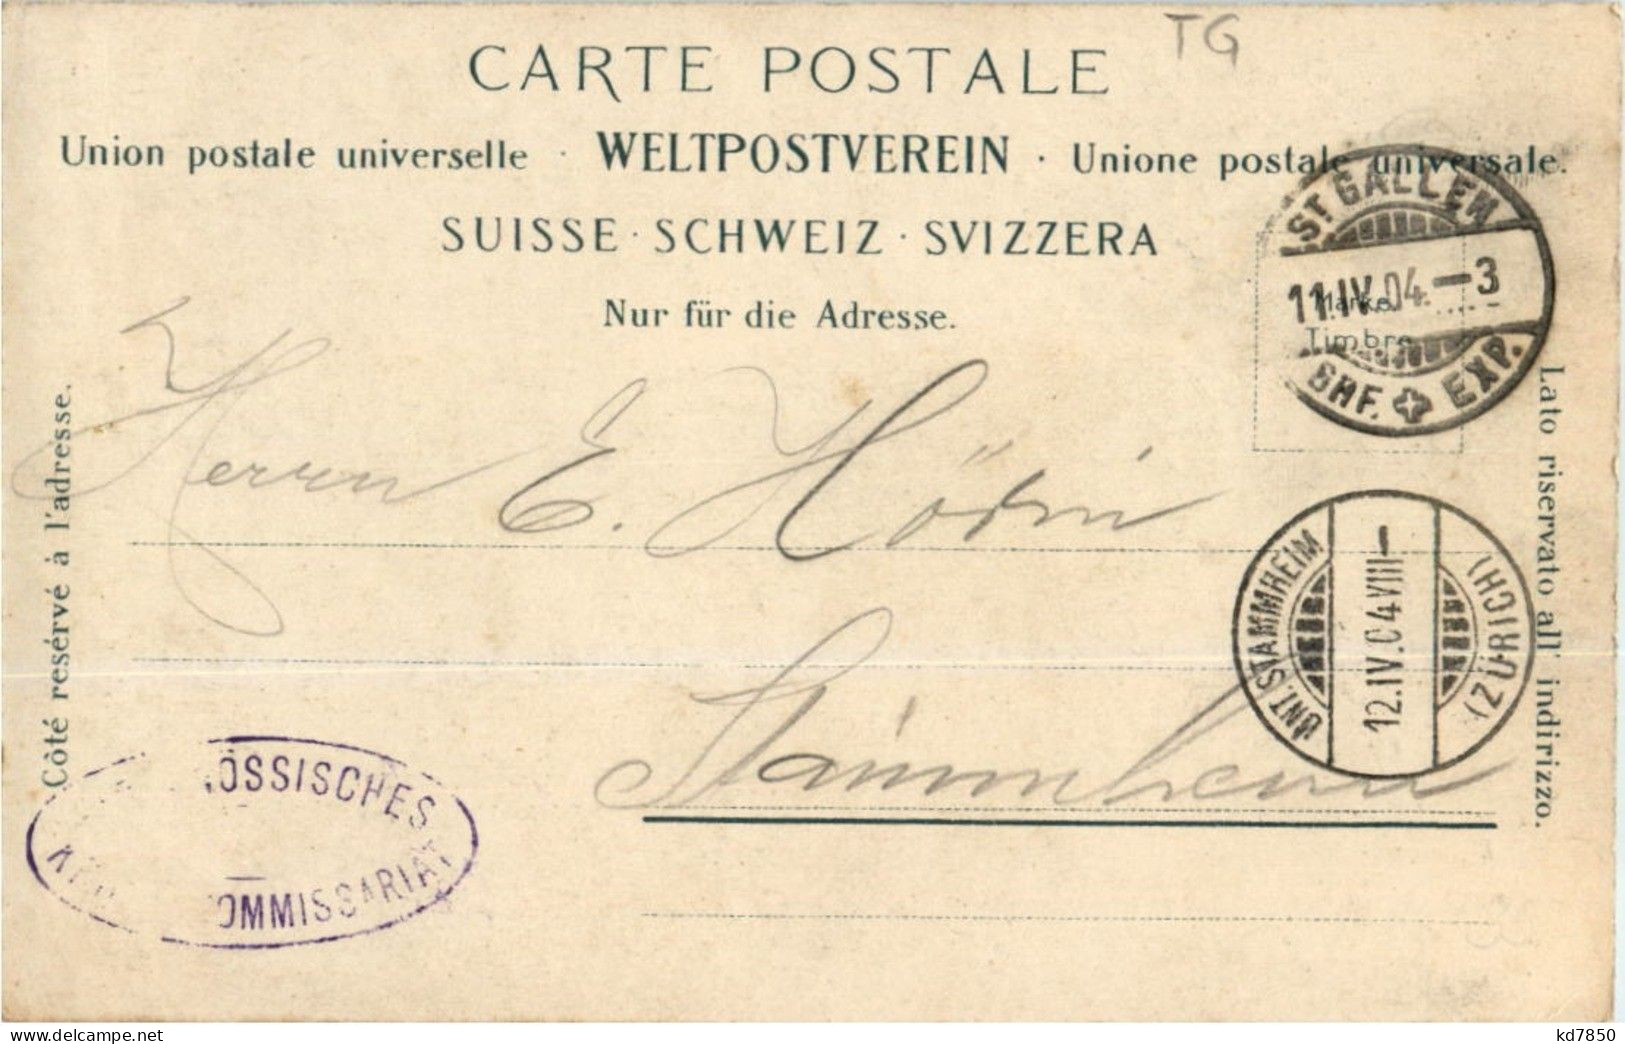 TG
CARTE POSTALE
Union postale universelle · WELTPOSTVEREIN · Unione postale universale.
SUISSE · SCHWEIZ · SVIZZERA
Nur für die Adresse.
ST. GALLEN
11.IV.04.–3
BHF. EXP.
Marke.
Timbre
Côté resérvé à l'adresse.
Lato riservato all' indirizzo.
Herrn E.
Stammheim
UNT. STAMMHEIM
12.IV.04 VIII–
(ZÜRICH)
ÖSSISCHES
OMMISSARIAT
www.delcampe.net
kd7850